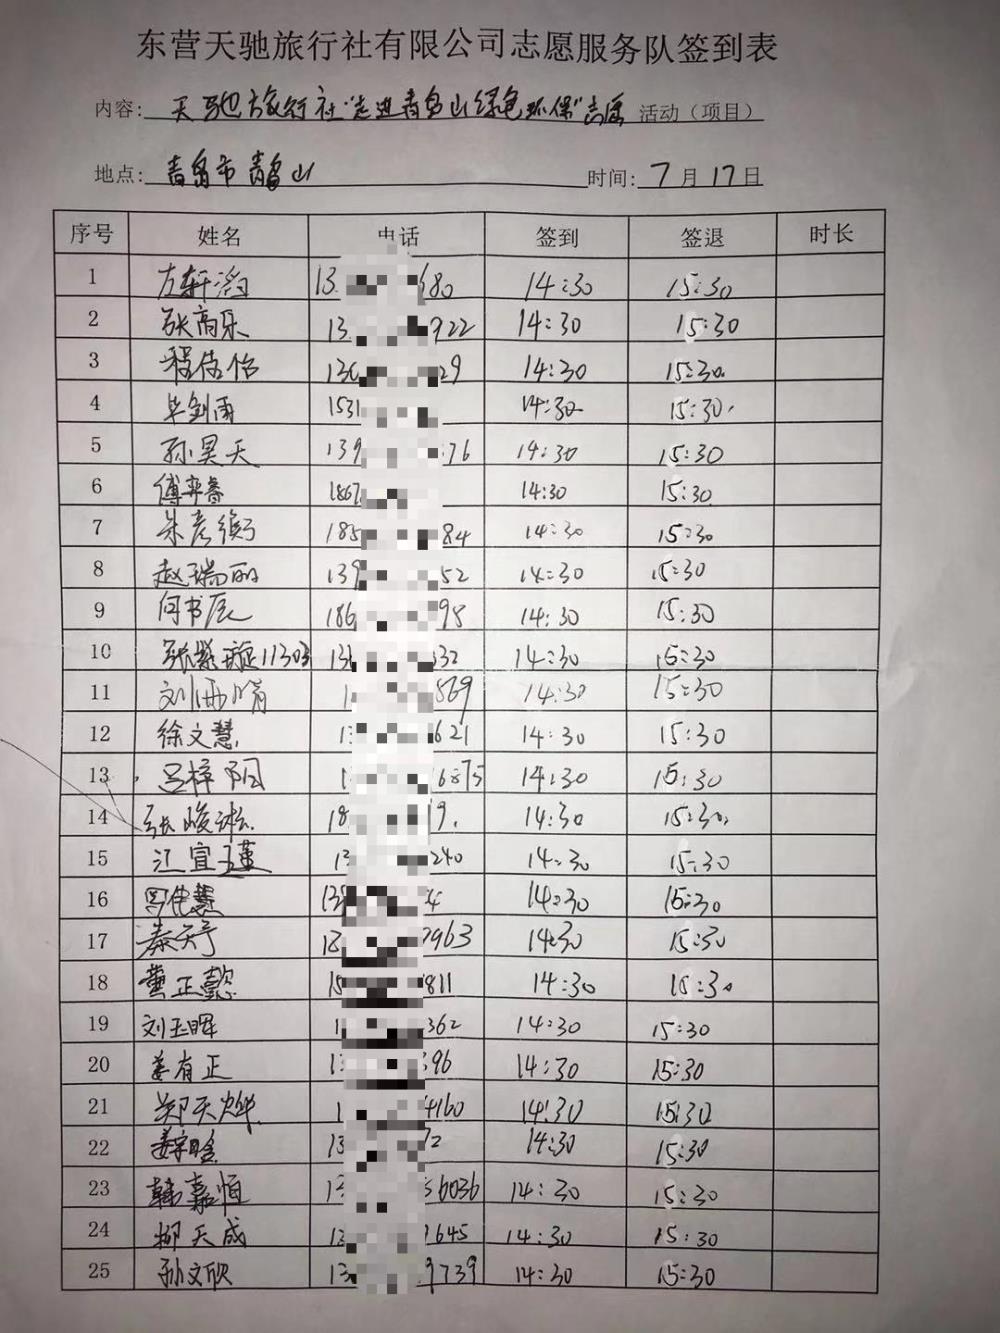 东营天驰旅行社有限公司志愿服务队签到表
内容: 天驰旅行社“走进青岛山绿色环保”志愿 活动（项目）
地点: 青岛市青岛山 时间: 7月17日
序号 姓名 电话 签到 签退 时长
1 左轩滔 13 680 14:30 15:30
2 张高乐 13 922 14:30 15:30
3 程倩怡 130 29 14:30 15:30
4 毕剑雨 1531 14:30 15:30
5 孙昊天 139 76 14:30 15:30
6 傅弈睿 1867 14:30 15:30
7 朱彦衡 185 84 14:30 15:30
8 赵瑞丽 139 52 14:30 15:30
9 何书辰 186 98 14:30 15:30
10 张 璇11303 13 32 14:30 15:30
11 刘西 1 869 14:30 15:30
12 徐文慧 13 621 14:30 15:30
13 吕梓阳 1 6875 14:30 15:30
14 张峻淞 18 19. 14:30 15:30
15 江宜瑾 13 240 14:30 15:30
16 佳慧 13 4 14:30 15:30
17 秦天宁 18 963 14:30 15:30
18 黄正懿 15 811 14:30 15:30
19 刘玉晖 1 362 14:30 15:30
20 姜有正 13 396 14:30 15:30
21 郑天烨 1 4160 14:30 15:30
22 姜 13 72 14:30 15:30
23 韩嘉恒 13 6036 14:30 15:30
24 柳天成 13 1645 14:30 15:30
25 孙文欣 13 9739 14:30 15:30